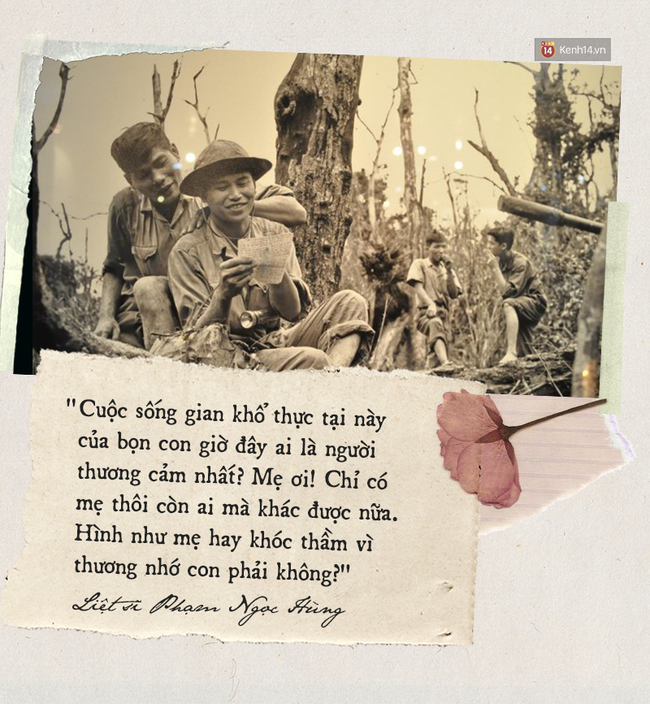 14 Kenh14.vn
"Cuộc sống gian khổ thực tại này
của bọn con giờ đây ai là người
thương cảm nhất? Mẹ ơi! Chỉ có
mẹ thôi còn ai mà khác được nữa.
Hình như mẹ hay khóc thầm vì
thương nhớ con phải không?"
Liệt sĩ Phạm Ngọc Hùng